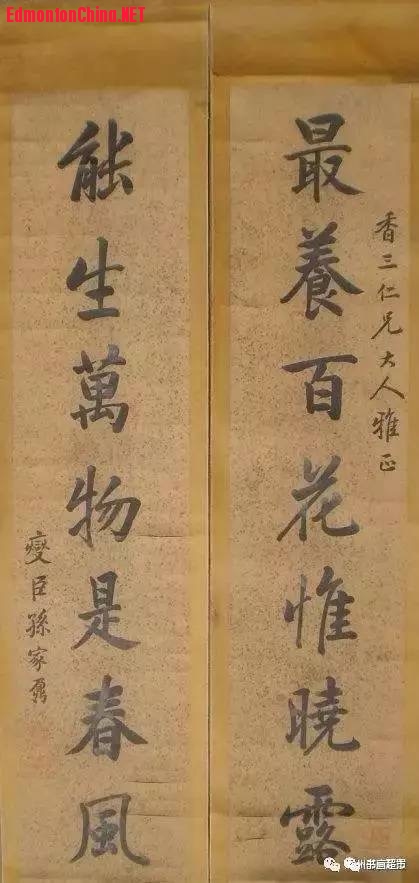 EdmontonChina.NET
香三仁兄大人雅正
最養百花惟曉露
能生萬物是春風
燮臣孫家鼐
州书画超市